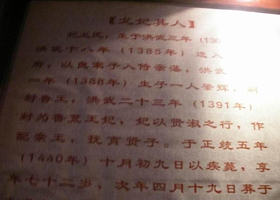 【戈妃其人】
妃戈氏，生于洪武三年（13
洪武十八年（1385年）选入
府，以良家子入侍帝藩，洪武
一年（1388年）生子一人肇煇，嗣
封鲁王，洪武二十三年（1391年）
封为鲁荒王妃，妃以贤淑之行，作
配亲王，抚育贤子。于正统五年
（1440年）十月初九日以疾薨，享
年七十二岁，次年四月十九日葬于